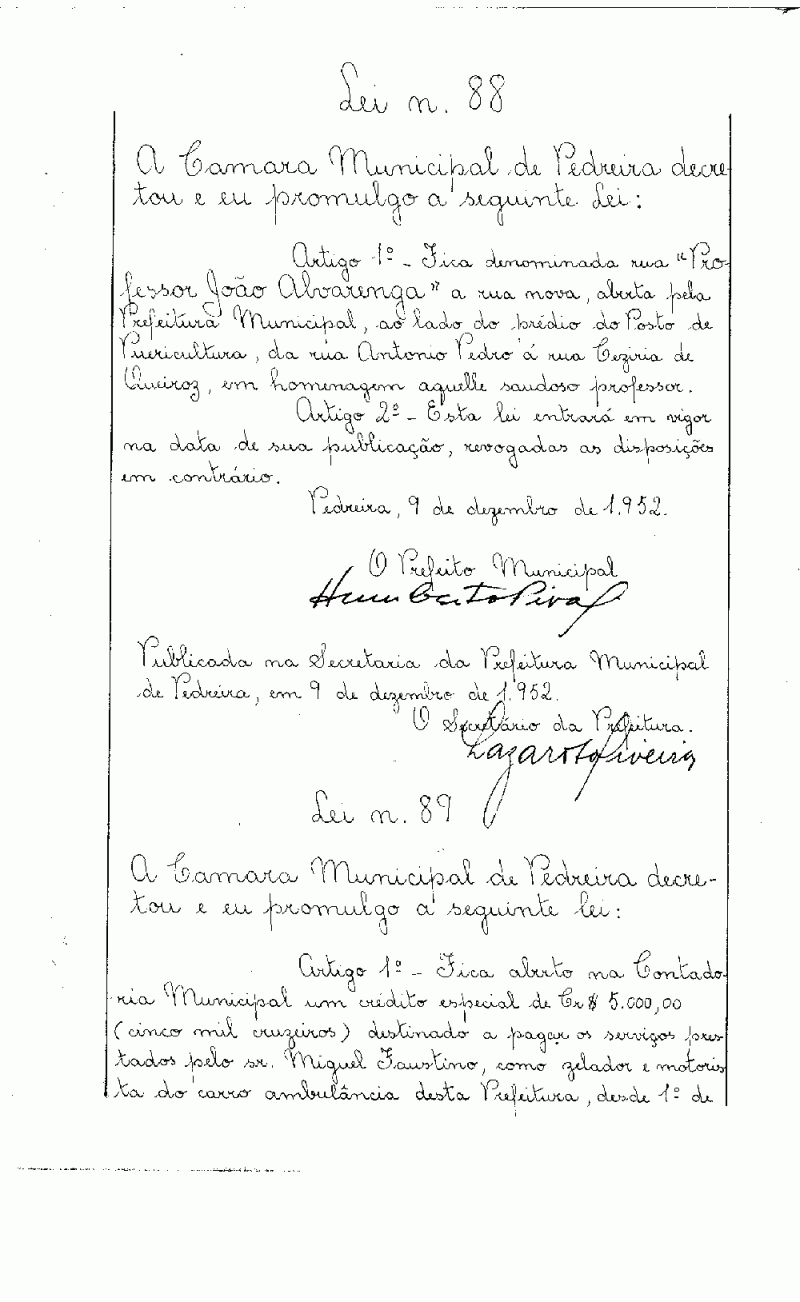 Lei n. 88
A Camara Municipal de Pedreira decre-
tou e eu promulgo a seguinte Lei:
Artigo 1º - Fica denominada rua "Pro-
fessor João Alvarenga" a rua nova, aberta pela
Prefeitura Municipal, ao lado do prédio do Posto de
Puericultura, da rua Antonio Pedro á rua Ceziria de
Queiroz, em homenagem aquelle saudoso professor.
Artigo 2º - Esta lei entrará em vigor
na data de sua publicação, revogadas as disposições
em contrário.
Pedreira, 9 de dezembro de 1.952.
O Prefeito Municipal
Humberto Piva
Publicada na Secretaria da Prefeitura Municipal
de Pedreira, em 9 de dezembro de 1.952.
O Secretário da Prefeitura.
Lazaro Oliveira
Lei n. 89
A Camara Municipal de Pedreira decre-
tou e eu promulgo a seguinte lei:
Artigo 1º - Fica aberto na Contado-
ria Municipal um crédito especial de Cr$ 5.000,00
(cinco mil cruzeiros) destinado a pagar os serviços pres
tados pelo sr. Miguel Faustino, como zelador e motoris
ta do carro ambulância desta Prefeitura, desde 1º de